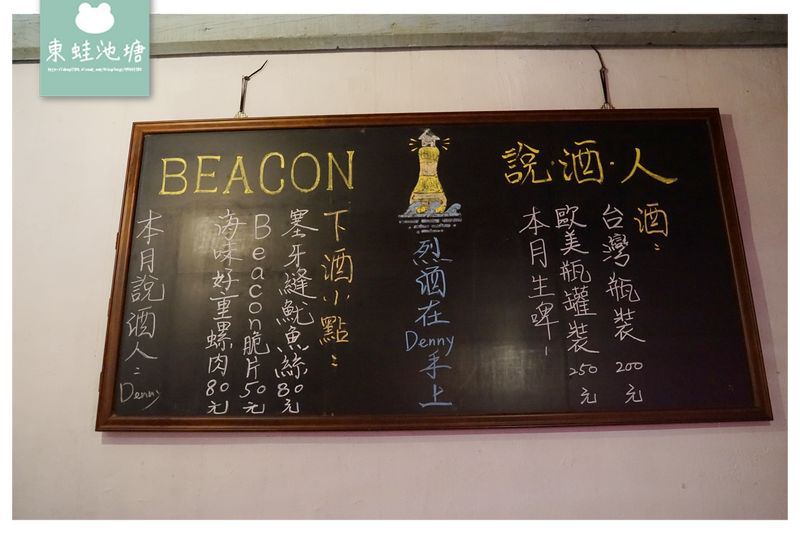 東蛙池塘
BEACON
說·酒·人
酒：
台灣瓶裝 200元
歐美瓶罐裝 250元
本月生啤-
烈酒在Denny手上
下酒小點：
塞牙縫魷魚絲80元
Beacon脆片50元
海味好重螺肉80元
本月說酒人：Denny